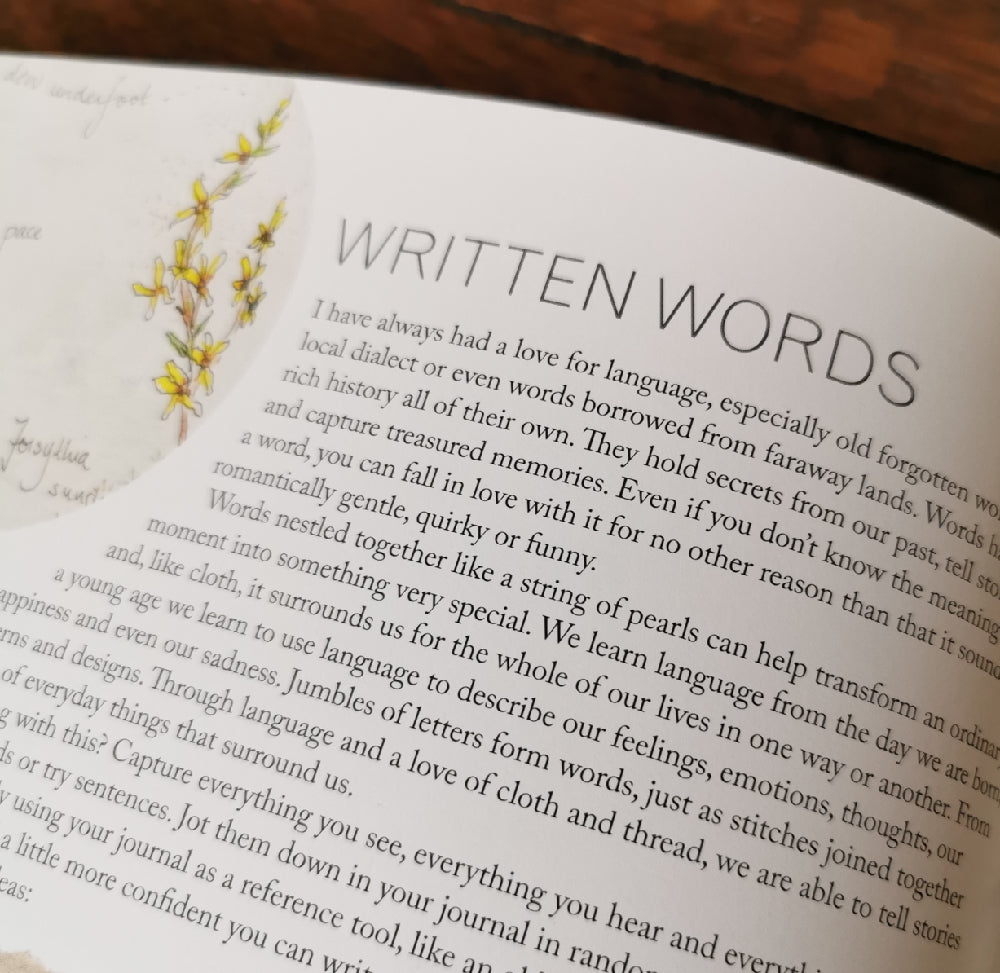 dew underfoot
pace
Forsythia
WRITTEN WORDS
I have always had a love for language, especially old forgotten
local dialect or even words borrowed from faraway lands. Words
rich history all of their own. They hold secrets from our past, tell
and capture treasured memories. Even if you don't know the meaning
a word, you can fall in love with it for no other reason than that it
romantically gentle, quirky or funny.
Words nestled together like a string of pearls can help transform an
moment into something very special. We learn language from the day we are born
and, like cloth, it surrounds us for the whole of our lives in one way or another. From
a young age we learn to use language to describe our feelings, emotions, thoughts, our
and even our sadness. Jumbles of letters form words, just as stitches joined together
and designs. Through language and a love of cloth and thread, we are able to tell stories
of everyday things that surround us.
with this? Capture everything you see, everything you hear and
or try sentences. Jot them down in your journal in
using your journal as a reference tool, like an
a little more confident you can